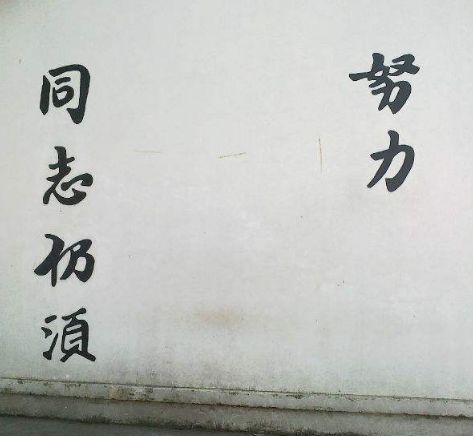 同志仍湏
努力